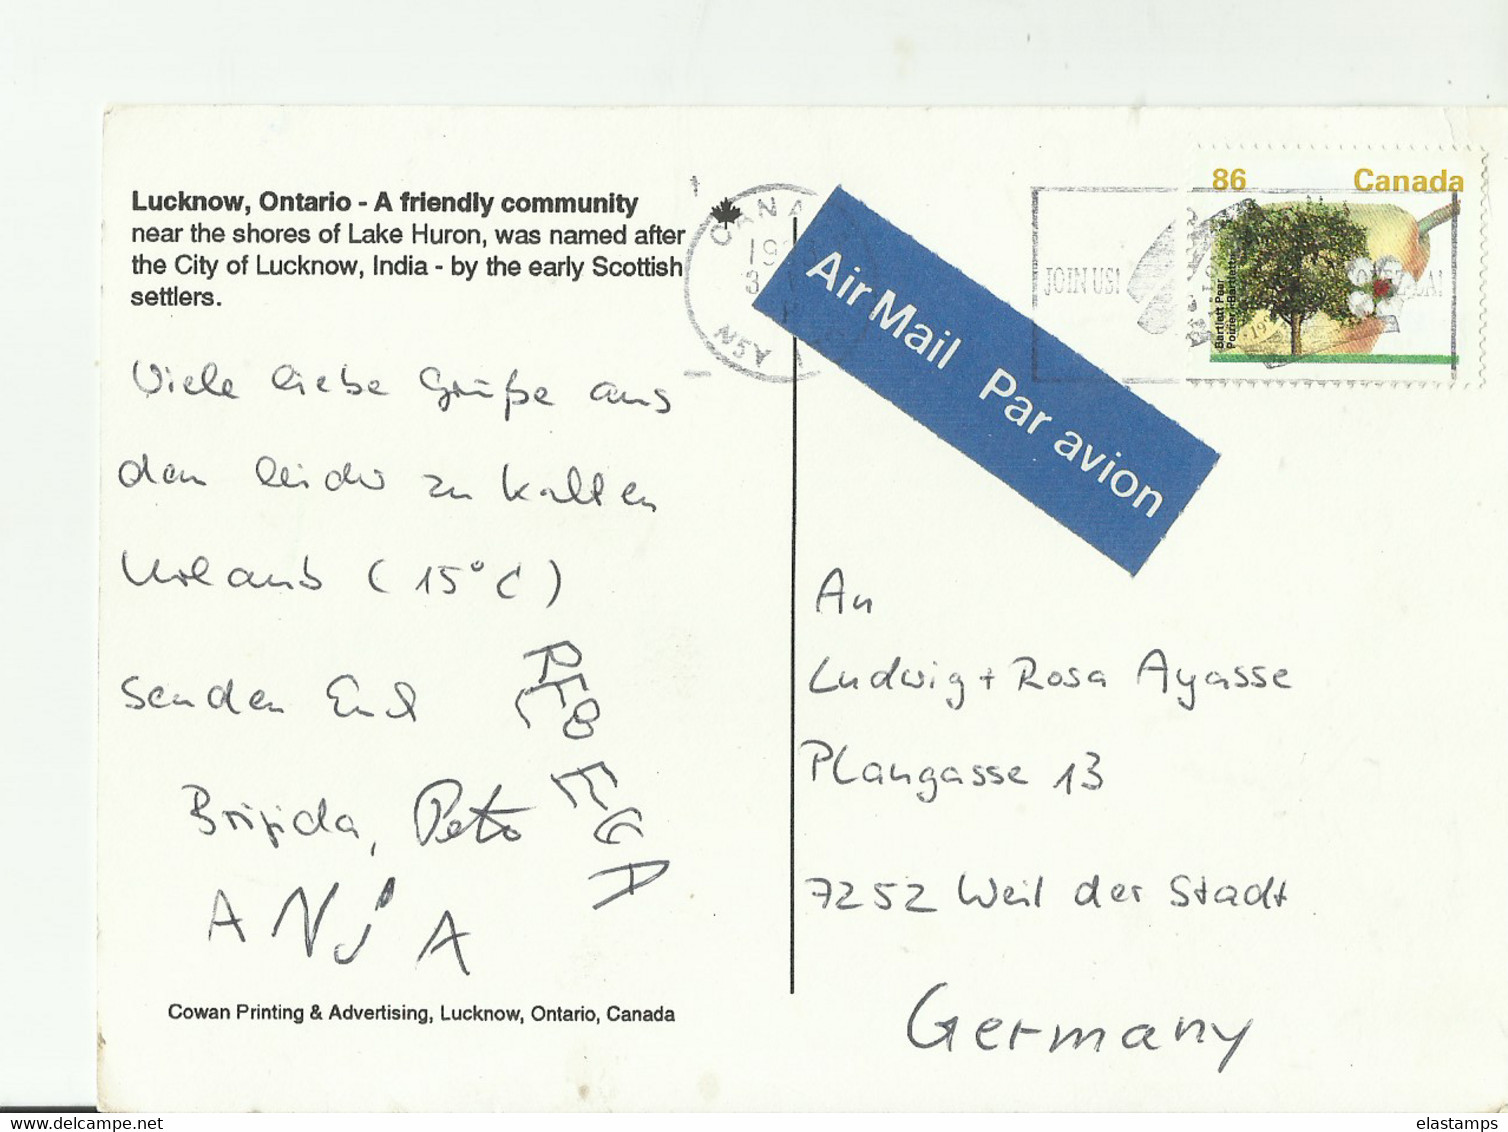 Lucknow, Ontario - A friendly community
near the shores of Lake Huron, was named after
the City of Lucknow, India - by the early Scottish
settlers.
Viele liebe Grüße aus
dem leider zu kalten
Urlaub (15°C)
senden Euch
Brigida, Peter
REBECCA
ANJA
Cowan Printing & Advertising, Lucknow, Ontario, Canada
CANA
19
N5Y
Air Mail Par avion
JOIN US!
86 Canada
Bartlett Pear
An
Ludwig + Rosa Ayasse
Plangasse 13
7252 Weil der Stadt
Germany
www.delcampe.net
elastamps